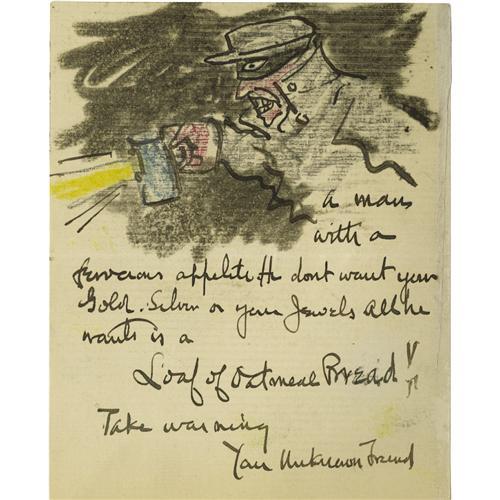 a man
with a
ferocious appetite He dont want your
Gold. Silver or your Jewels All he
wants is a
Loaf of Oatmeal Bread!!
Take warning
Your Unknown Friend